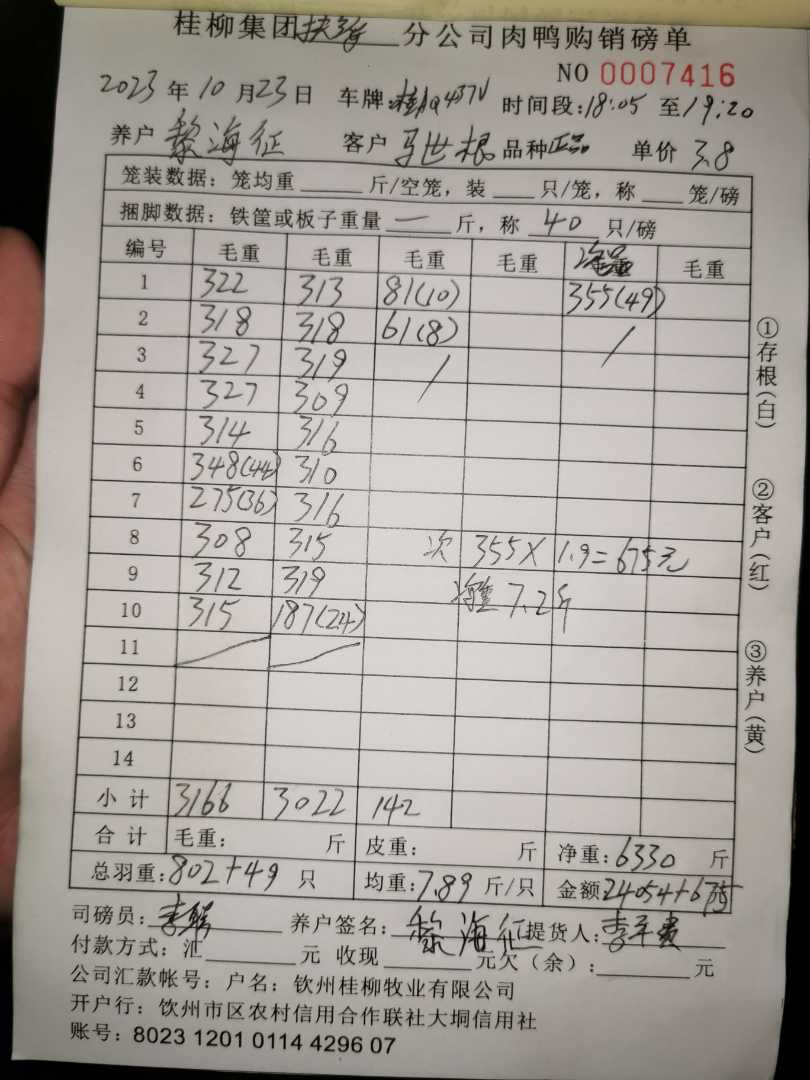 桂柳集团扶绥分公司肉鸭购销磅单
NO 0007416
2023年10月23日 车牌: 时间段:18:05至19:20
养户 黎海征 客户 马世根 品种 正品 单价 3.8
笼装数据：笼均重 斤/空笼，装 只/笼，称 笼/磅
捆脚数据：铁筐或板子重量 一 斤，称 40 只/磅
编号 毛重 毛重 毛重 毛重 毛重
1 322 313 81(10) 355(49)
2 318 318 61(8) /
3 327 319 /
4 327 309
5 314 316
6 348(44) 310
7 275(36) 316
8 308 315 次 355X1.9=675元
9 312 319 7.2斤
10 315 187(24)
11
12
13
14
小计 3166 3022 142
合计 毛重： 斤 皮重： 斤 净重：6330 斤
总羽重：802+49 只 均重：7.89 斤/只 金额24054+675
司磅员： 养户签名：黎海征 提货人：
付款方式：汇 元 收现 元欠（余）： 元
公司汇款帐号：户名：钦州桂柳牧业有限公司
开户行：钦州市区农村信用合作联社大垌信用社
账号：8023 1201 0114 4296 07
①存根(白)
②客户(红)
③养户(黄)